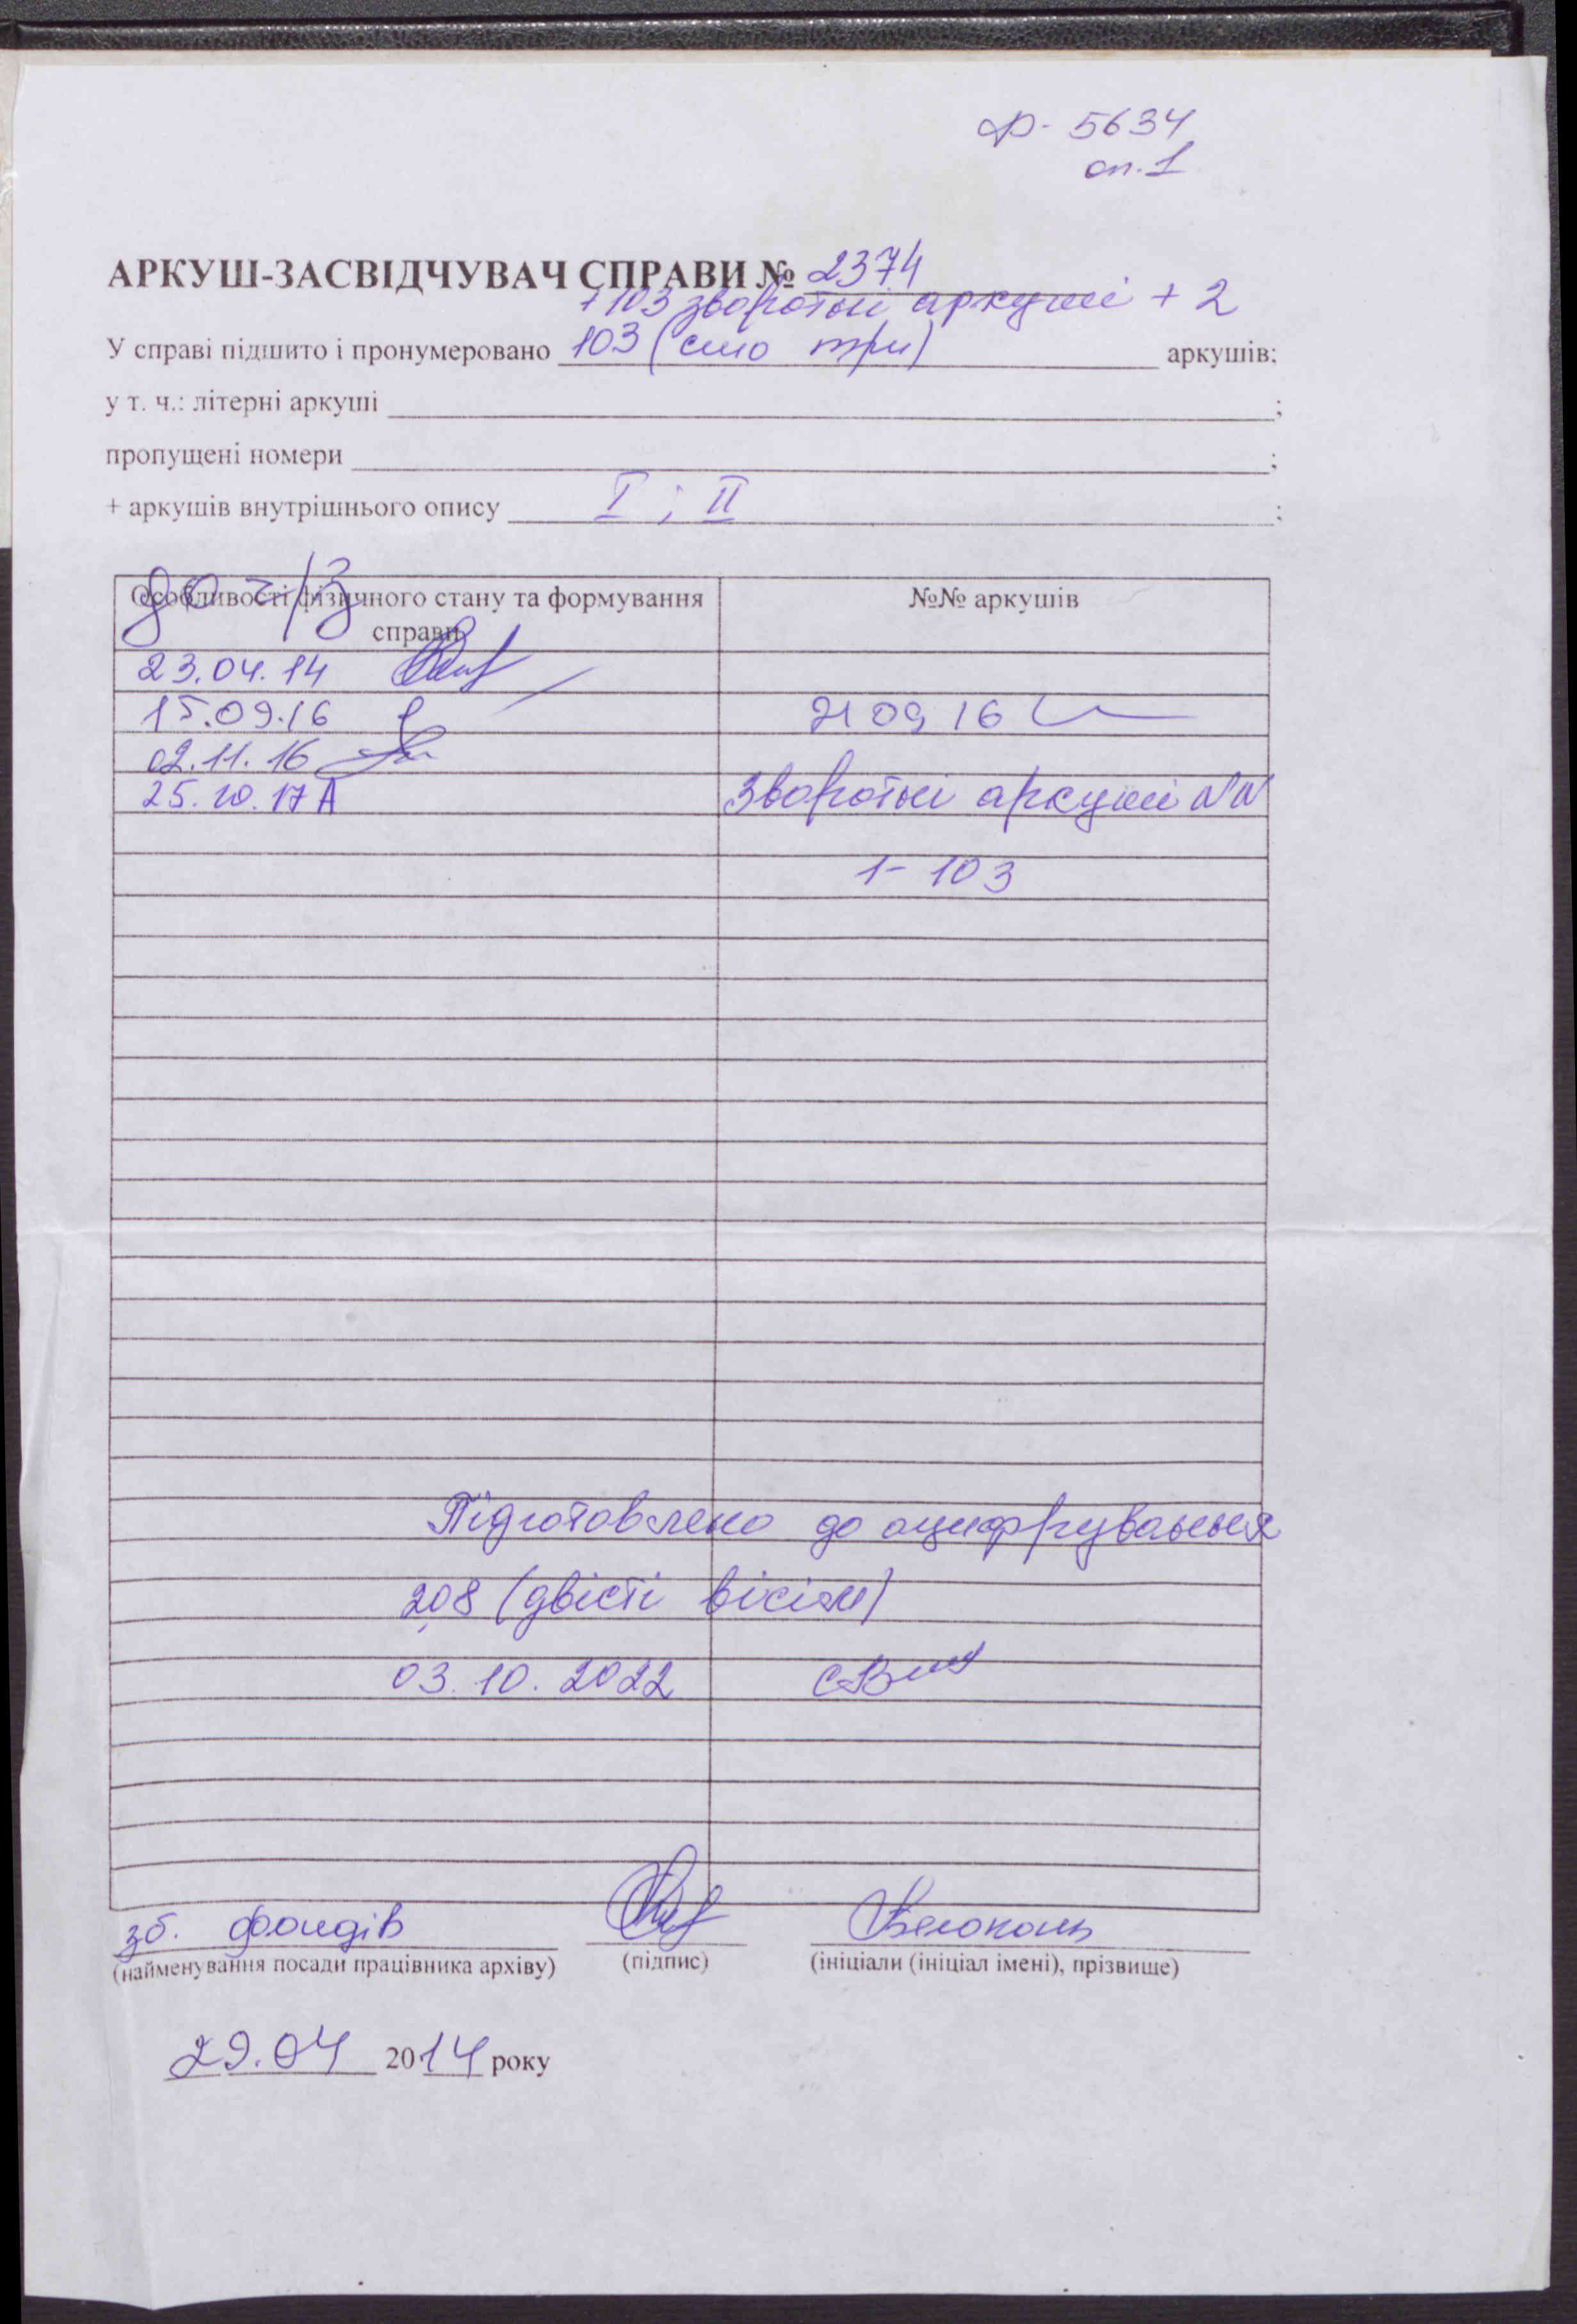 ф- 5634
оп. 1
АРКУШ-ЗАСВІДЧУВАЧ СПРАВИ № 2374
+ 103 зворотні аркуші + 2
У справі підшито і пронумеровано 103 (сто три) аркушів;
у т. ч.: літерні аркуші ;
пропущені номери ;
+ аркушів внутрішнього опису I ; II ;
до ч/з
Особливості фізичного стану та формування справи
№№ аркушів
23.04.14
15.09.16
21 09 16
02.11.16
25.10.17
Зворотні аркуші NN
1- 103
Підготовлено до оцифрування
208 (двісті вісім)
03.10.2022
зб. фондів
(найменування посади працівника архіву) (підпис) (ініціали (ініціал імені), прізвище)
29.04 2014 року